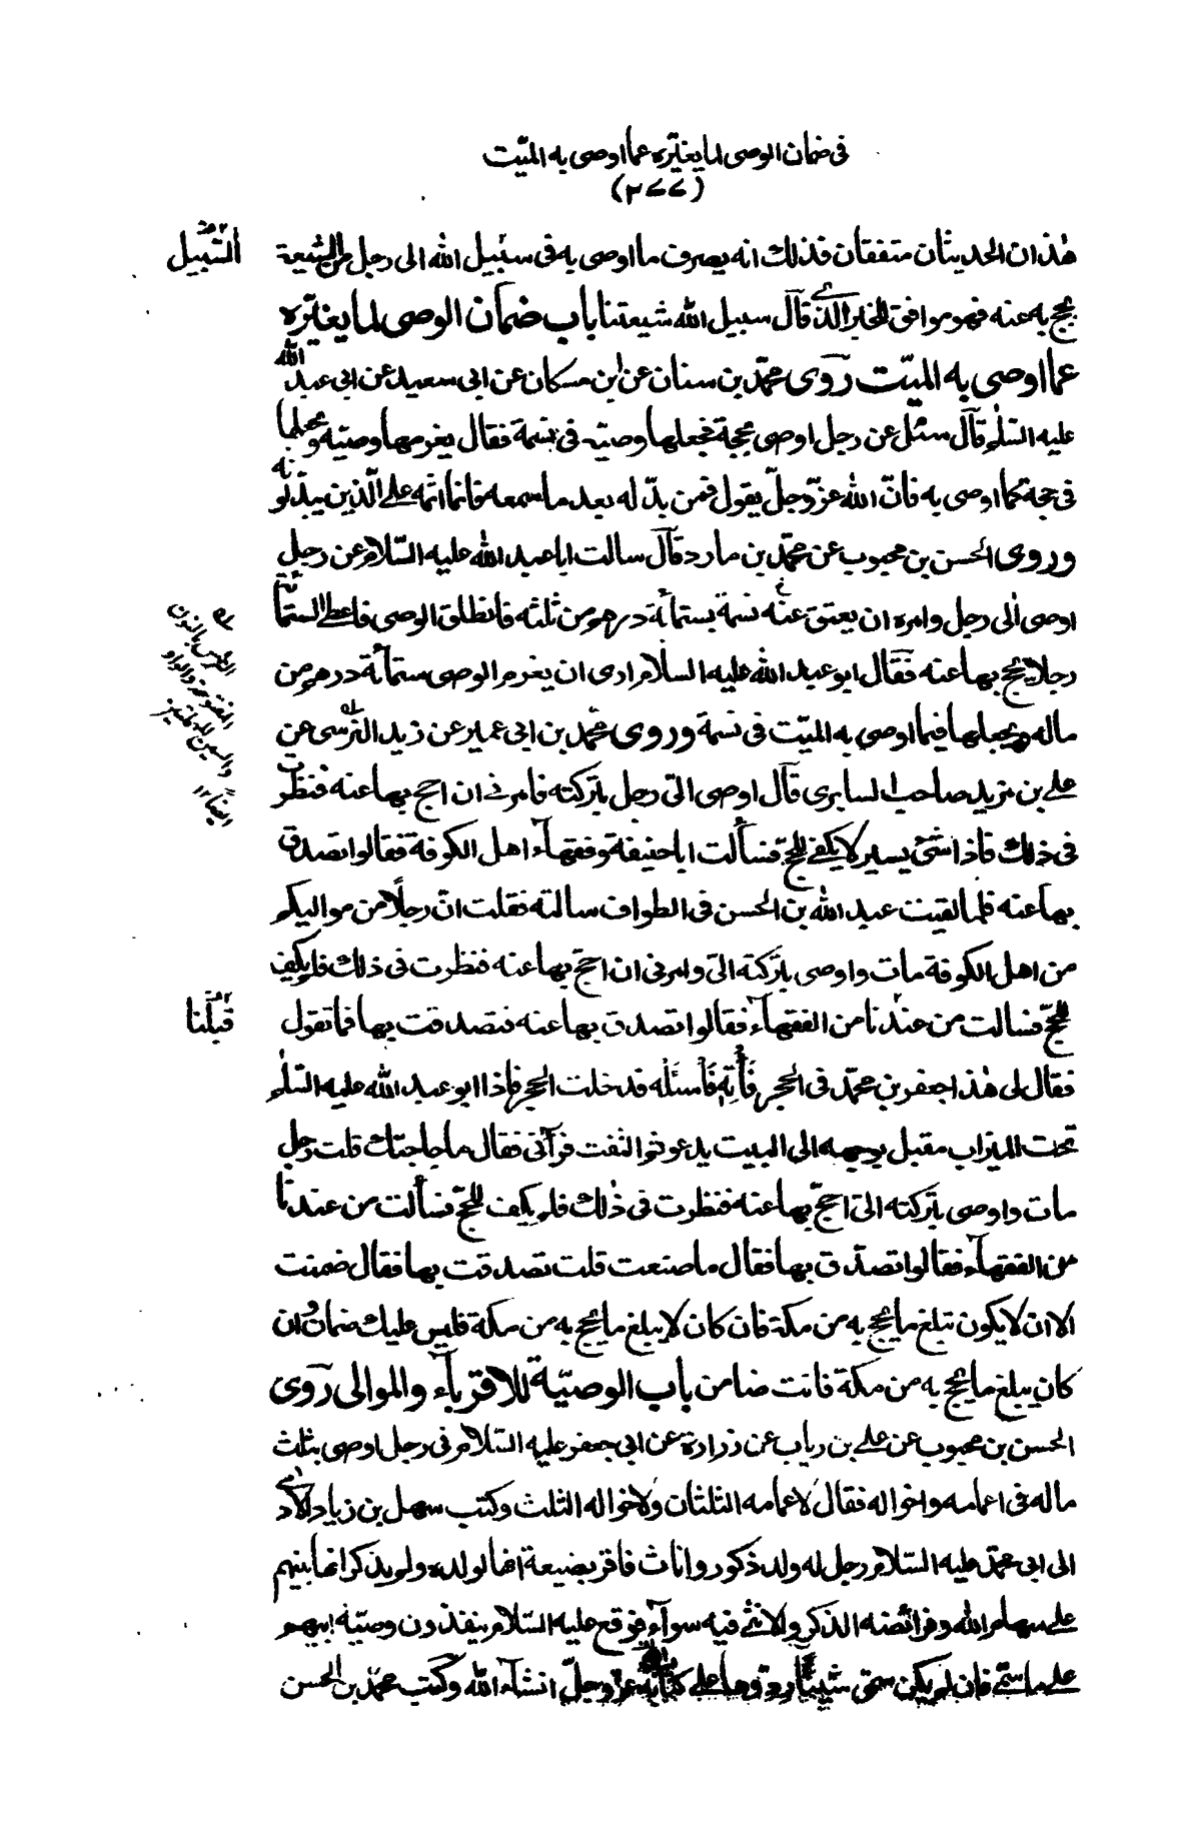 فى ضمان الوصى لما يغيّره عما اوصى به الميّت
(٢٧٧)
هٰذان الحديثان متفقان فذلك انه يصرف ما اوصى به فى سبيل الله الى رجل من الشيعة
السَّبِيل
يحج به عنه فهو موافق للخبر الذى قآل سبيل الله شيعتنا باب ضمان الوصى لما يغيّره
عما اوصى به الميّت روٓى محمّد بن سنان عن ابن مسكان عن ابى سعيد عن ابى عبد الله
عليه السّلم قآل سئل عن رجل اوصى بحجة فجعلها وصيّه فى نسمة فقال يغرمها وصيّه ويجعلها
فى حجة كما اوصى به فانّ الله عزّ وجلّ يقول فمن بدّله بعد ما سمعه فانما اثمه على الّذين يبدّلونه
وروى الحسن بن محبوب عن محمّد بن مارد قآل سالت ابا عبد الله عليه السّلام عن رجل
اوصى الى رجل وامره ان يعتق عنه نسمة بستمأة درهم من ثلثه فانطلق الوصى فاعطى الستّمأة
رجلا يحج بها عنه فقآل ابو عبد الله عليه السلام ارى ان يغرم الوصى ستمأة درهم من
ماله ويجعلها فيما اوصى به الميّت فى نسمة وروى محمّد بن ابى عمير عن زيد النرسى عن
النرسى بالنون
المفتوحة والراء
والسين المهملتين
ايضا ١٢
على بن مزيد صاحب السابرى قآل اوصى الىّ رجل بتركته فامرنى ان احج بها عنه فنظرت
فى ذلك فاذا شئ يسير لا يكفى للحجّ فسألت ابا حنيفة وفقهآء اهل الكوفة فقالوا تصدق
بها عنه فلما لقيت عبد الله بن الحسن فى الطواف سالته فقلت انّ رجلًا من مواليكم
من اهل الكوفة مات واوصى بتركته الىّ وامرنى ان احجّ بها عنه فنظرت فى ذلك فلم يكف
للحجّ فسالت من عندنا من الفقهآء فقالوا تصدق بها عنه فتصدقت بها فما تقول
قِبَلَنا
فقال لى هٰذا جعفر بن محمّد فى الحجر فَأْتِهِ فَاسْئَلْه فدخلت الحجر فاذا ابو عبد الله عليه السّلم
تحت الميزاب مقبل بوجهه الى البيت يدعو ثم التفت فرآنى فقال ما حاجتك قلت رجل
مات واوصى بتركته الىّ احجّ بها عنه فنظرت فى ذٰلك فلم يكف للحجّ فسألت من عندنا
من الفقهآء فقالوا تصدّق بها فقال ما صنعت قلت تصدقت بها فقال ضمنت
الا ان لا يكون تبلغ ما يحج به من مكة فان كان لا يبلغ ما يحج به من مكة فليس عليك ضمان وان
كان يبلغ ما يحج به من مكة فانت ضامن باب الوصيّة للاقربآء والموالى روٓى
الحسن بن محبوب عن على بن رياب عن زرارة عن ابى جعفر عليه السّلام فى رجل اوصى بثلث
ماله فى اعمامه واخواله فقال لاعمامه الثلثان ولاخواله الثلث وكتب سهل بن زياد الادمى
الى ابى محمّد عليه السّلام رجل له ولد ذكور واناث فاقر بضيعة انها لولده ولم يذكر انها بينهم
على سهام الله وفرائضه الذكر والانثى فيه سوآء فوقع عليه السّلام ينفذون وصيّة ابيهم
على ما سمّى فان لم يكن سمّى شيئًا ردّوها على كتاب الله عزّ وجلّ انشآء الله وكتب محمّد بن الحسن